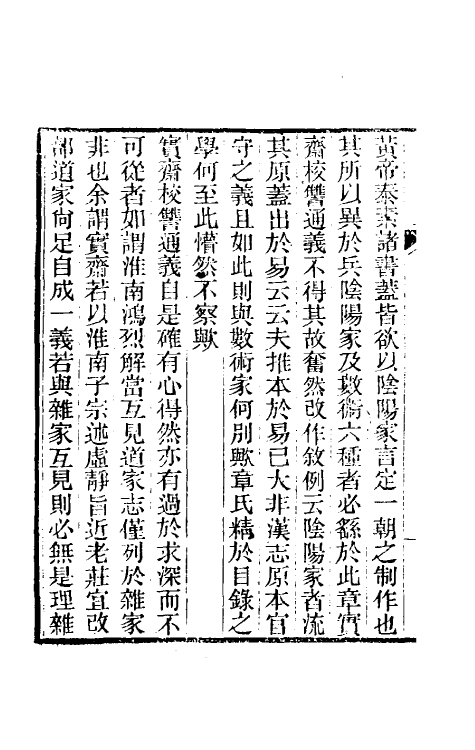 黃帝泰素諸書蓋皆欲以陰陽家言定一朝之制作也
其所以異於兵陰陽家及數術六種者必繇於此章實
齋校讐通義不得其故奮然改作敘例云陰陽家者流
其原蓋出於易云云夫推本於易已大非漢志原本官
守之義且如此則與數術家何別歟章氏精於目錄之
學何至此懵然不察歟
實齋校讐通義自是確有心得然亦有過於求深而不
可從者如謂淮南鴻烈解當互見道家志僅列於雜家
非也余謂實齋若以淮南子宗述虛靜旨近老莊宜改
部道家尙足自成一義若與雜家互見則必無是理雜